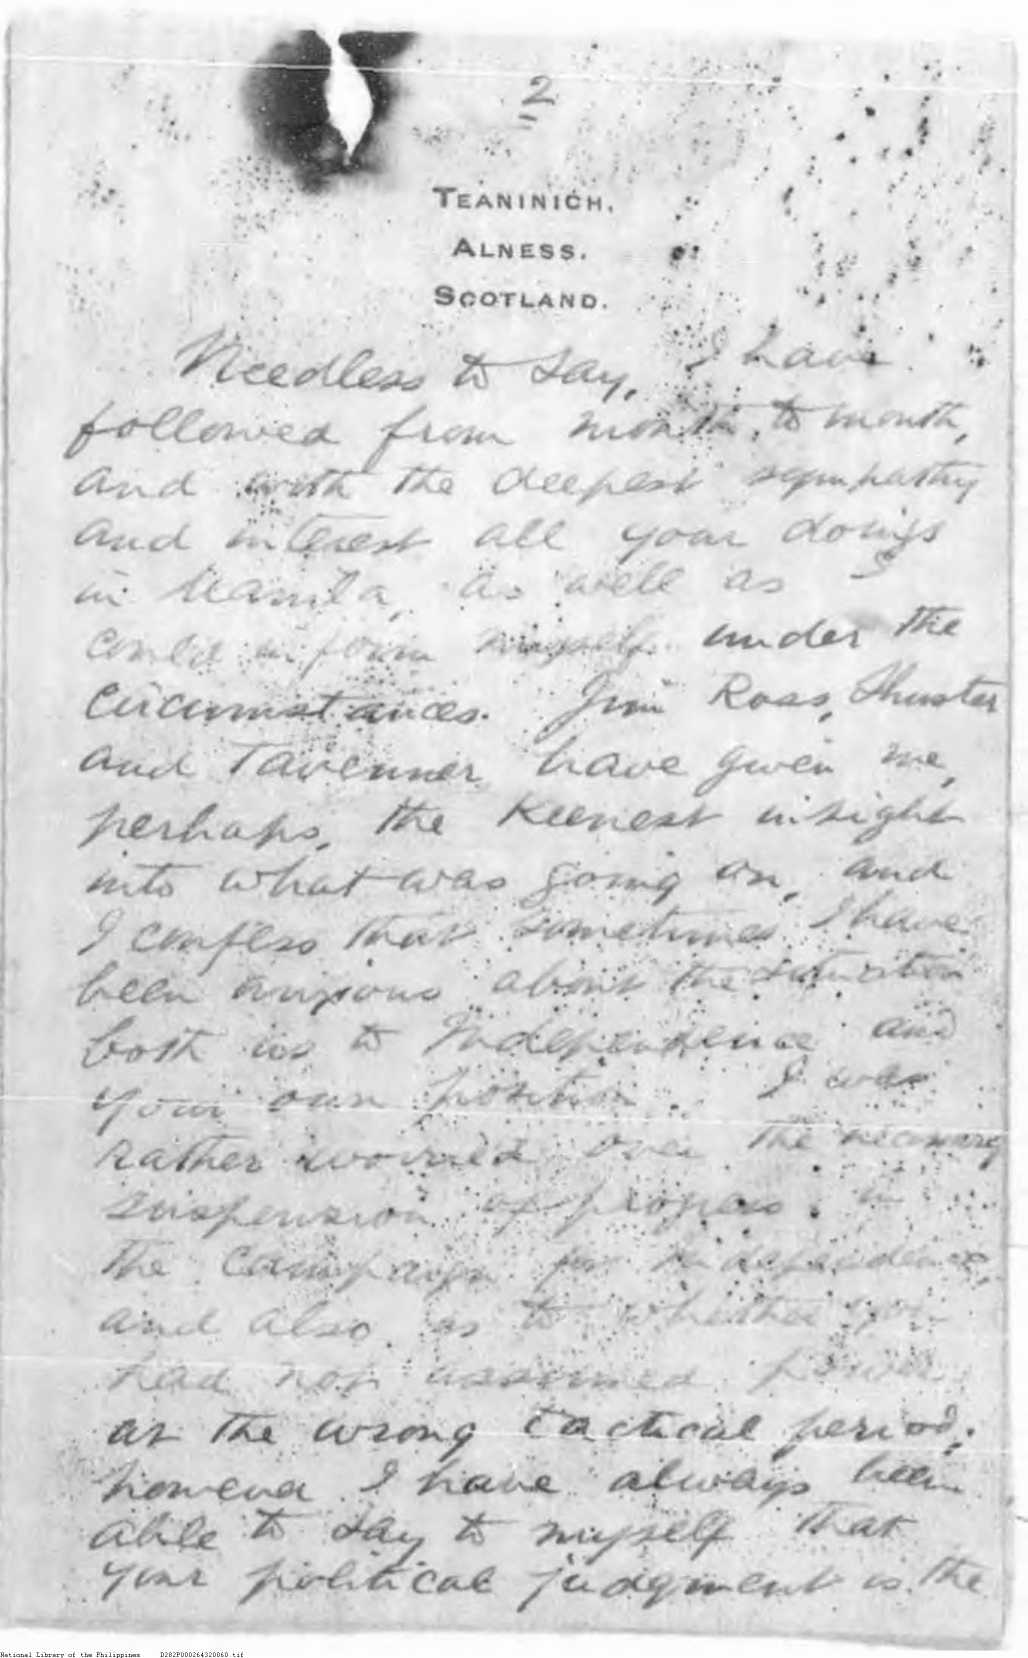 2
TEANINICH,
ALNESS.
SCOTLAND.
Needless to say, I have
followed from month to month,
and with the deepest sympathy
and interest all your doings
in Manila, as well as I
could inform myself under the
circumstances. Jim Ross, Thuster
and Tavenner have given me,
perhaps, the keenest insight
into what was going on, and
I confess that sometimes I have
been anxious about the situation
both as to Independence and
your own position. I was
rather worried over the necessary
suspension of progress in
the campaign for independence,
and also as to whether you
had not assumed power
at the wrong tactical period;
however I have always been
able to say to myself that
your political judgment is the
National Library of the Philippines D282P000264320060.tif